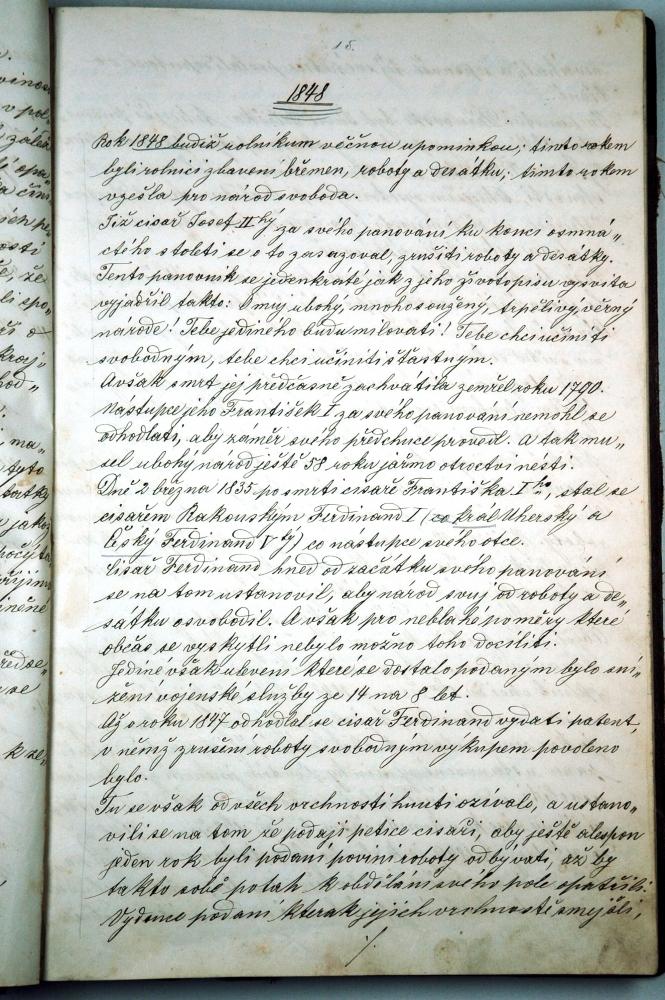 15.
1848
Rok 1848 budiž rolníkum věčnou upomínkou; tímto rokem
byli rolníci zbaveni břemen, roboty a desátku; tímto rokem
vzešla pro národ svoboda.
Též císař Josef II hý za svého panování ku konci osmná„
ctého století se o to zasazoval, zrušiti roboty a desátky.
Tento panovník se jedenkráte jak z jeho životopisu vysvita
vyjádřil takto: O muj ubohý, mnohosoužený, trpělivý, věrný
národe! Tebe jediného budu milovati! Tebe chci učiniti
svobodným, tebe chci učiniti šťastným.
Avšak smrt jej předčasně zachvátila zemřel roku 1790.
Nástupce jeho František I za svého panování nemohl se
odhodlati, aby záměr svého předchuce provedl. A tak mu„
sel ubohý národ ještě 58 roku jářmo otroctví nésti.
Dně 2 března 1835 po smrti císaře Františka I ho, stal se
císařem Rakouským Ferdinand I (co král Uherský a
Český Ferdinand V tý) co nástupce svého otce.
Císař Ferdinand hned od začátku svého panování
se na tom ustanovil, aby národ svuj od roboty a de„
sátku osvobodil. Avšak pro neblahé poměry které
občas se vyskytli nebylo možno toho docíliti.
Jediné však ulevení které se dostalo podaným bylo sní„
žení vojenské služby ze 14 na 8 let.
Až o roku 1847 odhodlal se císař Ferdinand vydati patent,
v němž zrušení roboty svobodným výkupem povoleno
bylo.
Tu se však od všech vrchností hnutí ozívalo, a ustano„
vili se na tom že podají petice císaři, aby ještě alespon
jeden rok byli podaní povini roboty odbyvati, až by
takto sobě potah k obdělání svého pole opatřili.
Vydouce podaní kterak jejich vrchnosti smejšlí,
./.